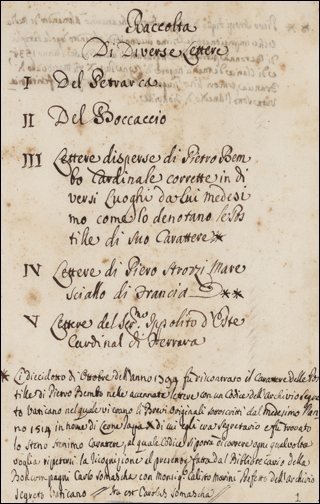 Raccolta
Di Diverse Lettere
I Del Petrarca
II Del Boccaccio
III Lettere disperse di Pietro Bem
bo Cardinale corrette in di
versi Luoghi da Lui medesi
mo come lo denotano le Pos
tille di suo Carattere *
IV Lettere di Piero Strozzi Mare
sciallo di Francia **
V Lettere del Ser.mo Ippolito d'Este
Cardinal di Ferrara
* Li diecidotto di Ottobre dell'anno fu riscontrato il Carattere delle Pos
tille di Pietro Bembo nelle accennate Lettere con un Codice dell'Archivio Segre
to Vaticano nel quale vi sono li Brevi Originali del medesimo l'an
no 1514 in nome di Leone Papa X di cui egli era Segretario e fu trovato
lo stesso Carattere, al quale Codice si potrà ricorrere ogni qualvolta
voglia ripetersi la ricognizione al presente fatta dal Bibliotecario della
Boncompagni Carlo Somascha con monsig.
segreto Vaticano Ita est Carolus Somascha
1